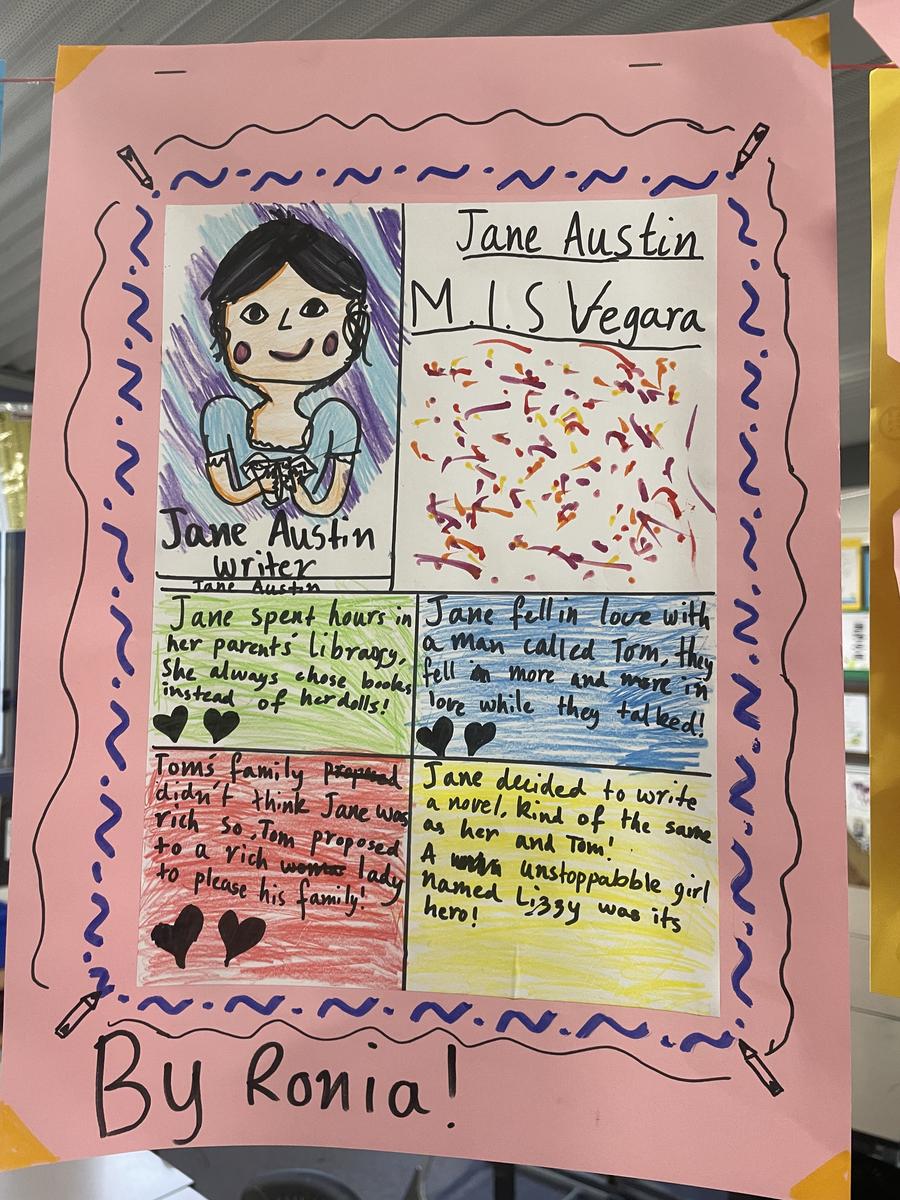 Jane Austin
writer
Jane Austin
Jane Austin
M.I.S Vegara
Jane spent hours in
her parents' library,
She always chose books
instead of her dolls!
Jane fell in love with
a man called Tom, they
fell in more and more in
love while they talked!
Tom's family
didn't think Jane was
rich so, Tom proposed
to a rich lady
to please his family!
Jane decided to write
a novel, kind of the same
as her and Tom!
A unstoppabble girl
named Lizzy was its
hero!
By Ronia!